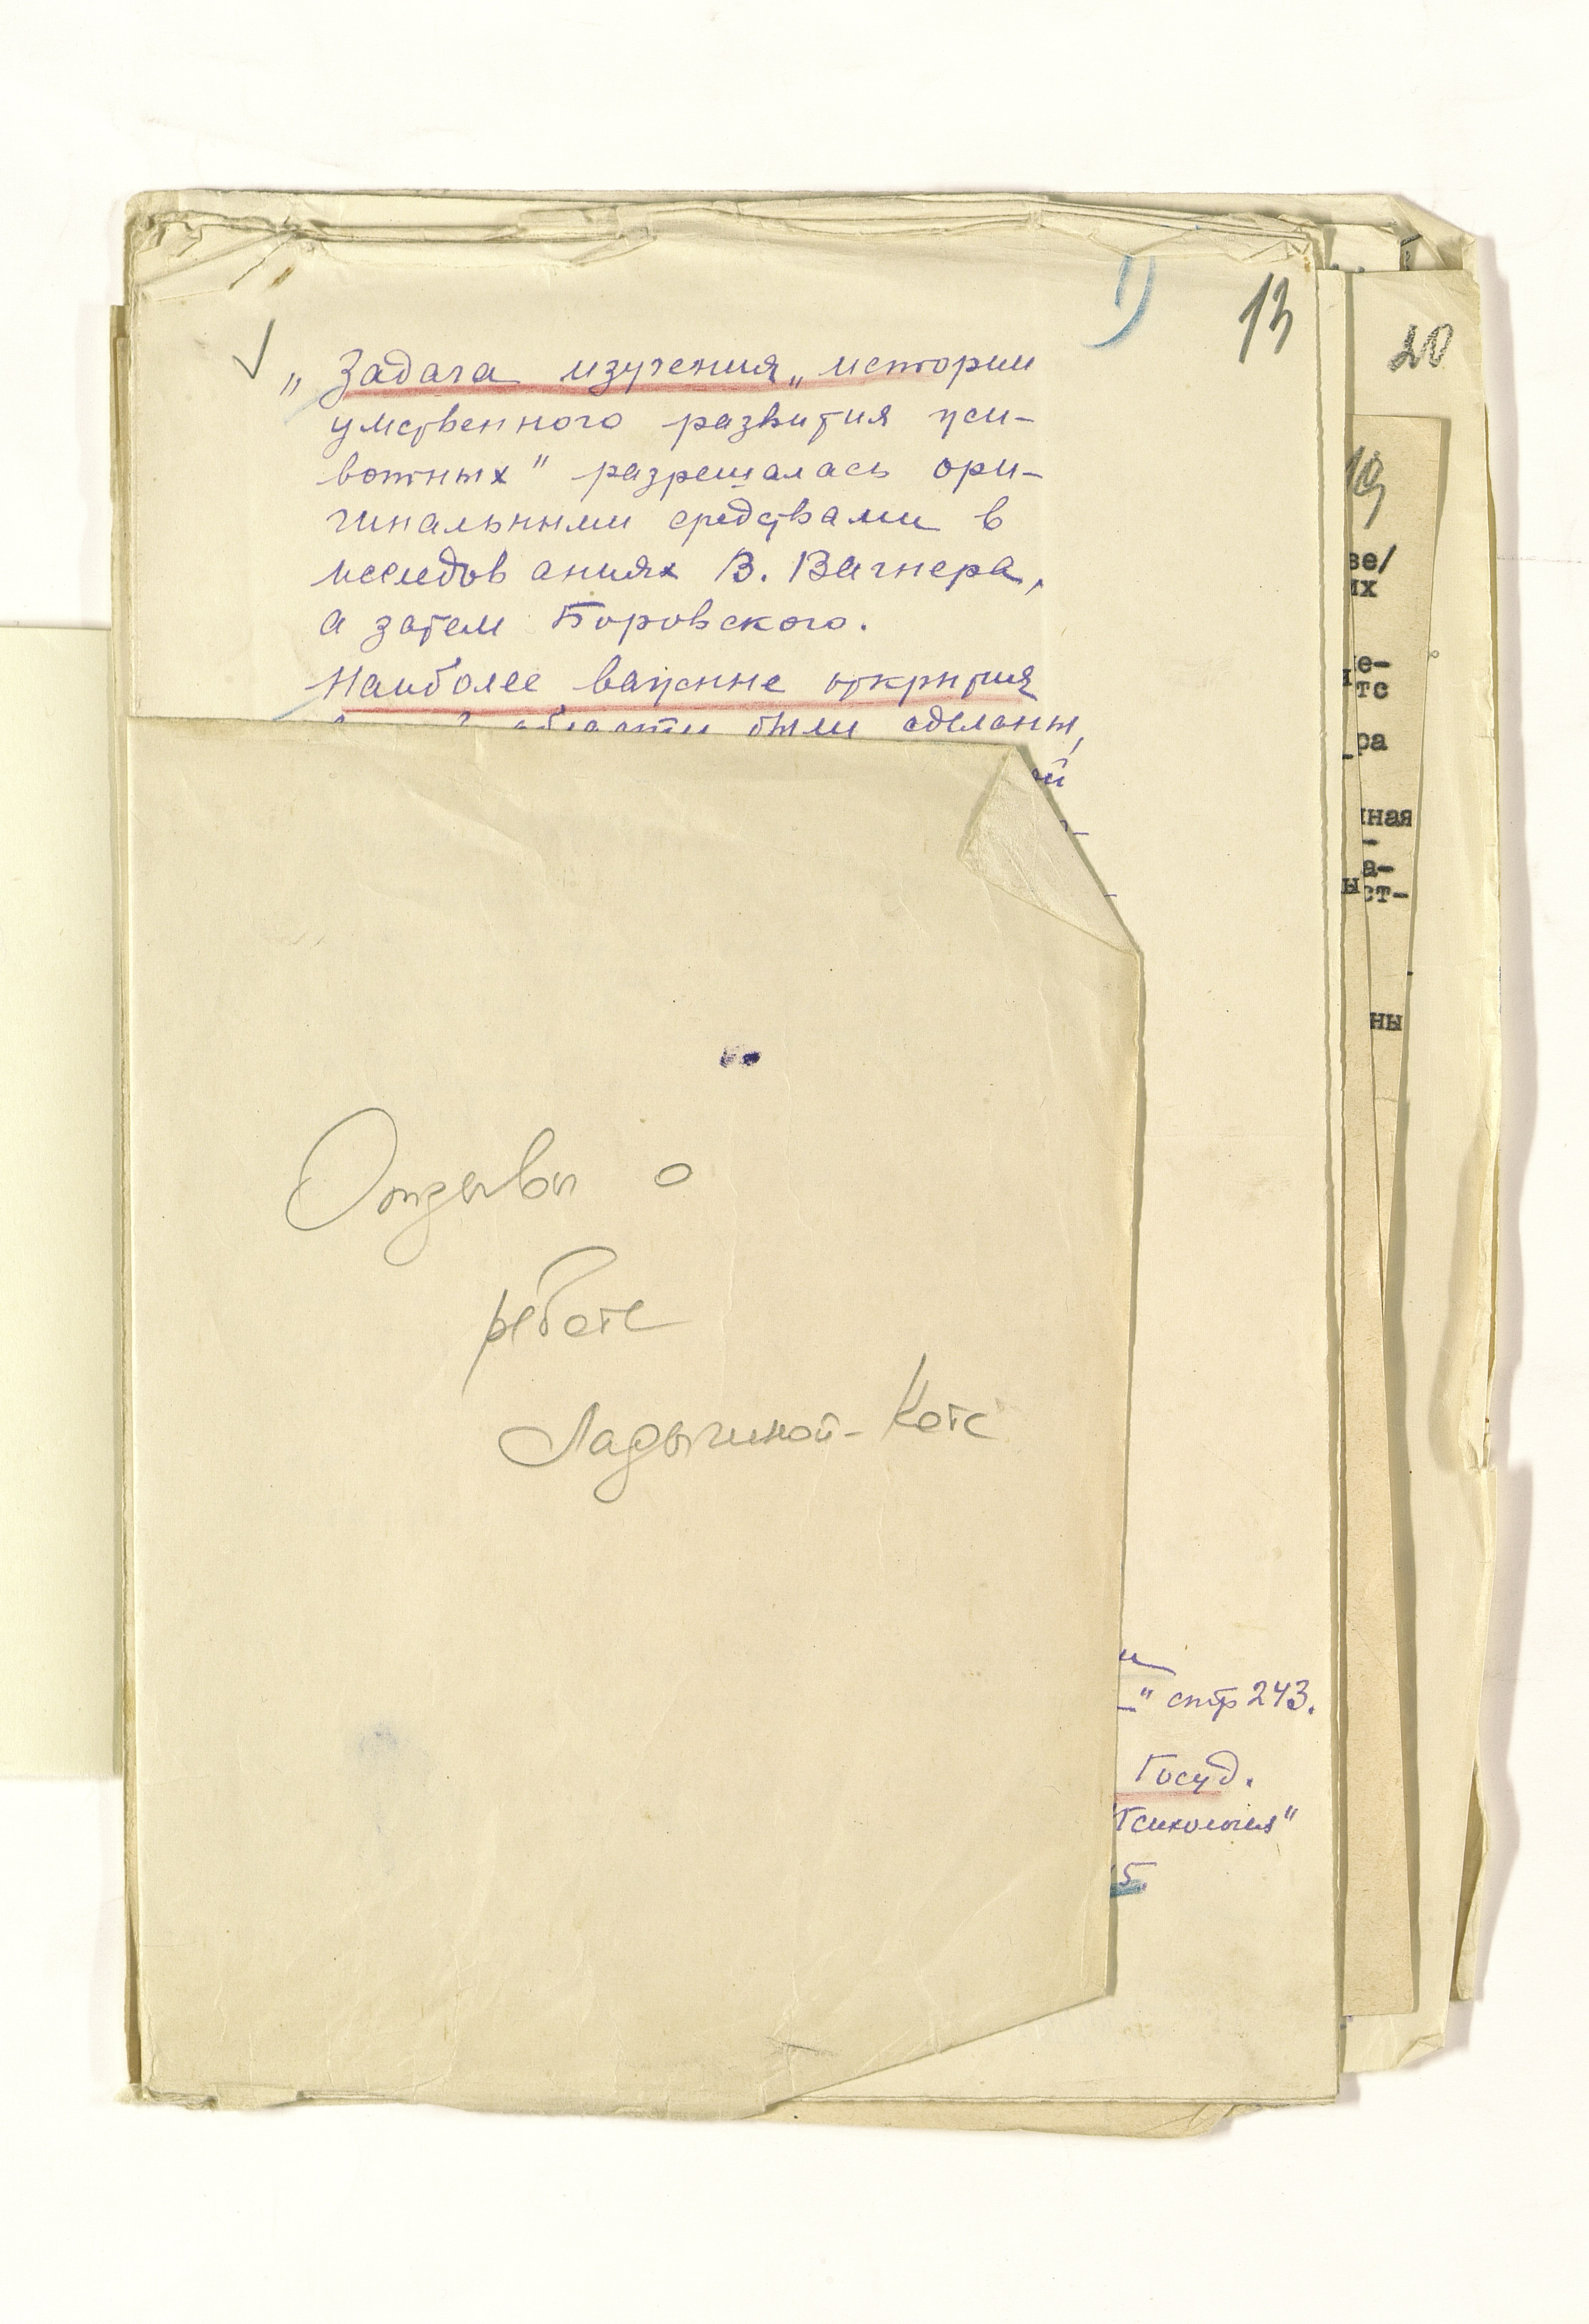 1)
13
20
„Задача изучения „истории
умственного развития жи-
вотных" разрешалась ори-
гинальными средствами в
исследованиях В. Вагнера,
а затем Боровского.
Наиболее важные открытия
области были сделаны,
й
19
ве/
их
е-
тс
ра
нная
а-
ст-
ны
Отзывы о
работе
Ладыгиной-Котс
и
" стр 243.
Госуд.
"Психология"
5.